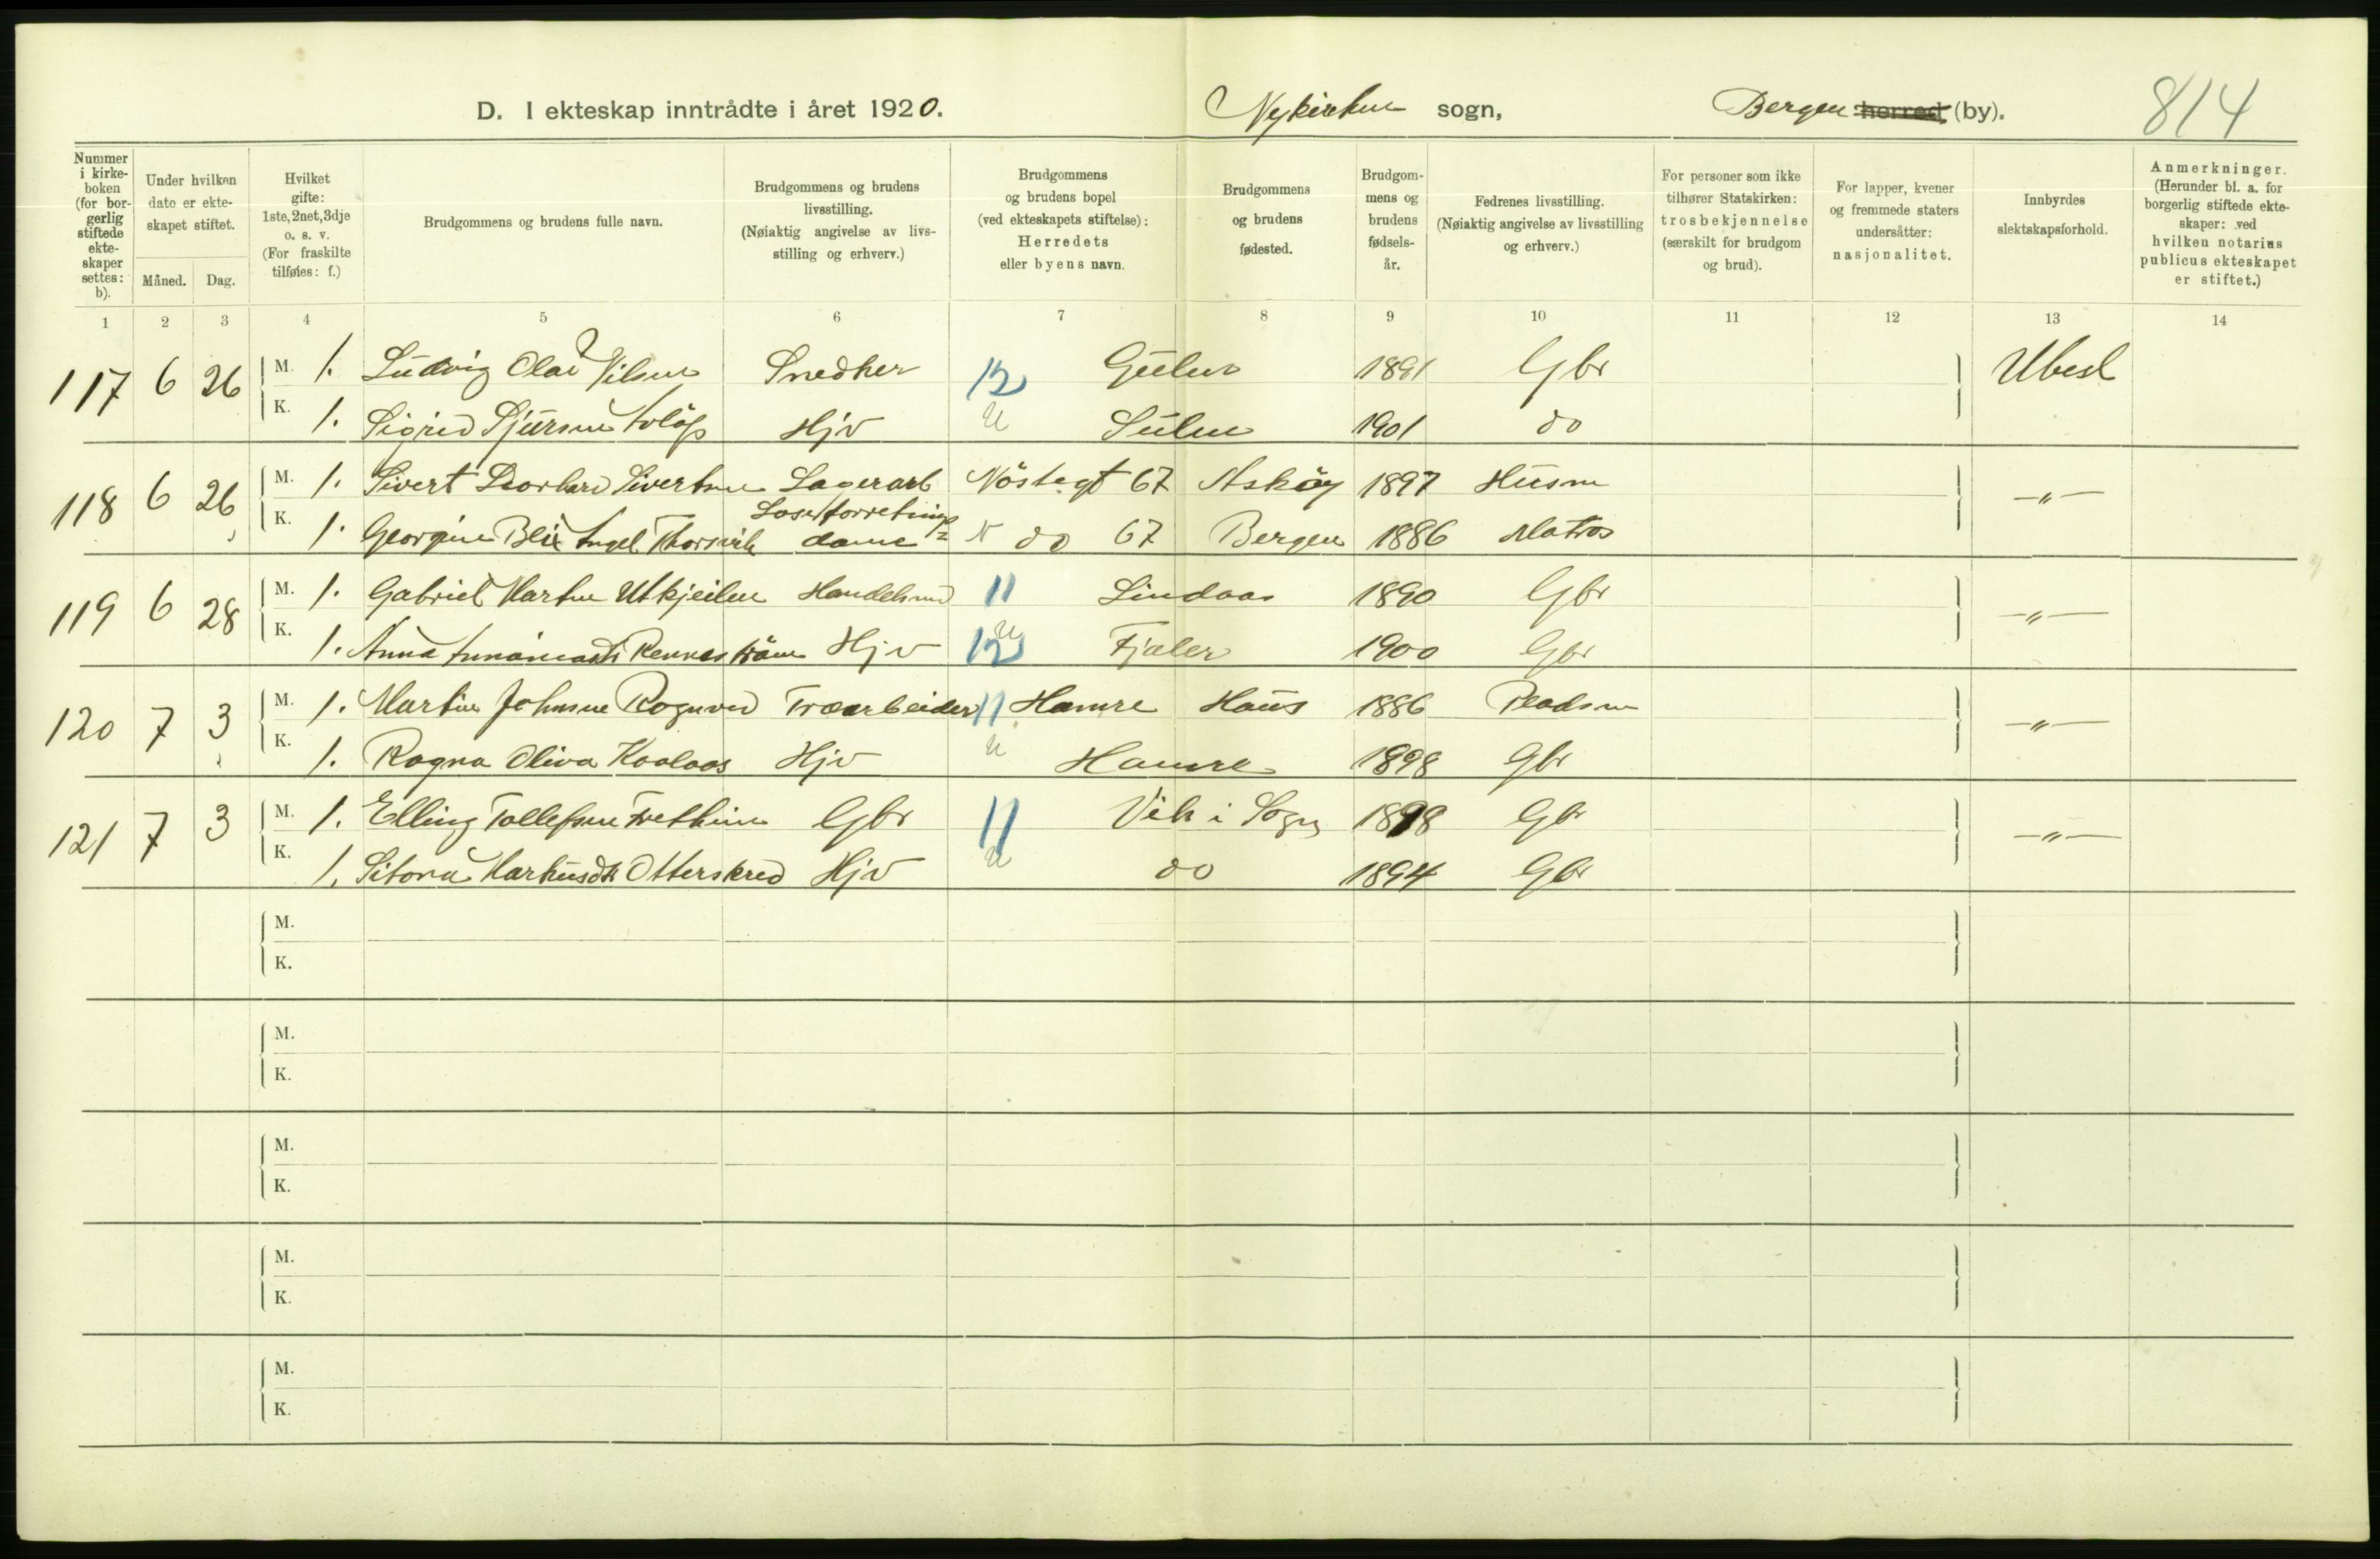 D. I ekteskap inntrådte i året 1920. Nykirken sogn, Bergen herred (by). 814
Nummer i kirke-boken (for bor-gerlig stiftede ekte-skaper settes: b).
Under hvilken dato er ekte-skapet stiftet.
Måned. Dag.
Hvilket gifte: 1ste, 2net, 3dje o. s. v. (For fraskilte tilføies: f.)
Brudgommens og brudens fulle navn.
Brudgommens og brudens livsstilling. (Nøiaktig angivelse av livs-stilling og erhverv.)
Brudgommens og brudens bopel (ved ekteskapets stiftelse): Herredets eller byens navn.
Brudgommens og brudens fødested.
Brudgom-mens og brudens fødsels-år.
Fedrenes livsstilling. (Nøiaktig angivelse av livsstilling og erhverv.)
For personer som ikke tilhører Statskirken: trosbekjennelse (særskilt for brudgom og brud).
For lapper, kvener og fremmede staters undersåtter: nasjonalitet.
Innbyrdes slektskapsforhold.
Anmerkninger. (Herunder bl. a. for borgerlig stiftede ekte-skaper: ved hvilken notarius publicus ekteskapet er stiftet.)
1 2 3 4 5 6 7 8 9 10 11 12 13 14
117 6 26 M. 1. Ludvig Olai Nilsen Snedker 12 Gulen 1891 Gbr Ubesl
K. 1. Sigrid Sjursen Hjv u Sulen 1901 do
118 6 26 M. 1. Sivert Sivertsen Lagerarb Nöstegt 67 Asköy 1897 Husm -"-
K. 1. Georgine Blix Engel Thorsvik dame N do 67 Bergen 1886 Matros
119 6 28 M. 1. Gabriel Martin Utkjeilen Handelsmd 11 Lindaas 1890 Gbr -"-
K. 1. Anna Hjv 12 u Fjaler 1900 Gbr
120 7 3 M. 1. Martin Johnsen Rognved Træarbeider 11 Hamre Haus 1886 Pladsm -"-
K. 1. Ragna Oliva Kaalaas Hjv u Hamre 1898 Gbr
121 7 3 M. 1. Elling Tollefsen Gbr 11 Vik i Sogn 1898 Gbr -"-
K. 1. Markusdt Otterskred Hjv u do 1894 Gbr
M.
K.
M.
K.
M.
K.
M.
K.
M.
K.